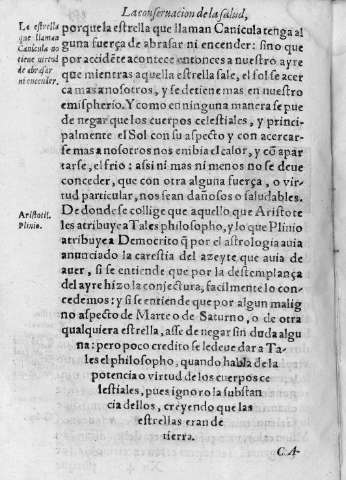 La conseruacion de la salud,
La estrella
que llaman
Canicula no
tiene virtud
de abrasar
ni encender.
porque la estrella que llaman Canicula tenga al
guna fuerça de abrasar ni encender: sino que
por accidēte acontece entonces a nuestro ayre
que mientras aquella estrella sale, el sol se acer
ca mas a nosotros, y se detiene mas en nuestro
emispherio. Y como en ninguna manera se pue
de negar que los cuerpos celestiales, y princi-
palmente el Sol con su aspecto y con acercar-
se mas a nosotros nos embia el calor, y cō apar
tarse, el frio: assi ni mas ni menos no se deue
conceder, que con otra alguna fuerça, o vir-
tud particular, nos sean dañosos o saludables.
Aristotil.
Plinio.
De donde se collige que aquello que Aristote
les atribuye a Tales philosopho, y lo que Plinio
atribuye a Democrito q̄ por el astrologia auia
anunciado la carestia del azeyte que auia de
auer, si se entiende que por la destemplança
del ayre hizo la conjectura, facilmente lo con
cedemos: y si se entiende que por algun malig
no aspecto de Marte o de Saturno, o de otra
qualquiera estrella, asse de negar sin duda algu
na: pero poco credito se le deue dar a Ta-
les el philosopho, quando habla de la
potencia o virtud de los cuerpos ce
lestiales, pues ignoro la substan
cia dellos, creyendo que las
estrellas eran de
tierra.
C.A-